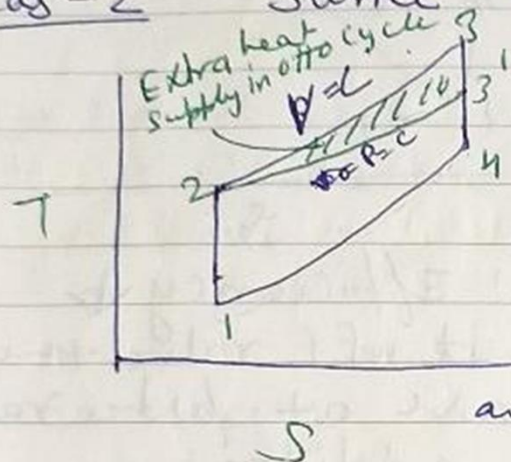 Extra heat
supply in otto cycle
3
V=C
3'
P=C
2
4
T
1
S